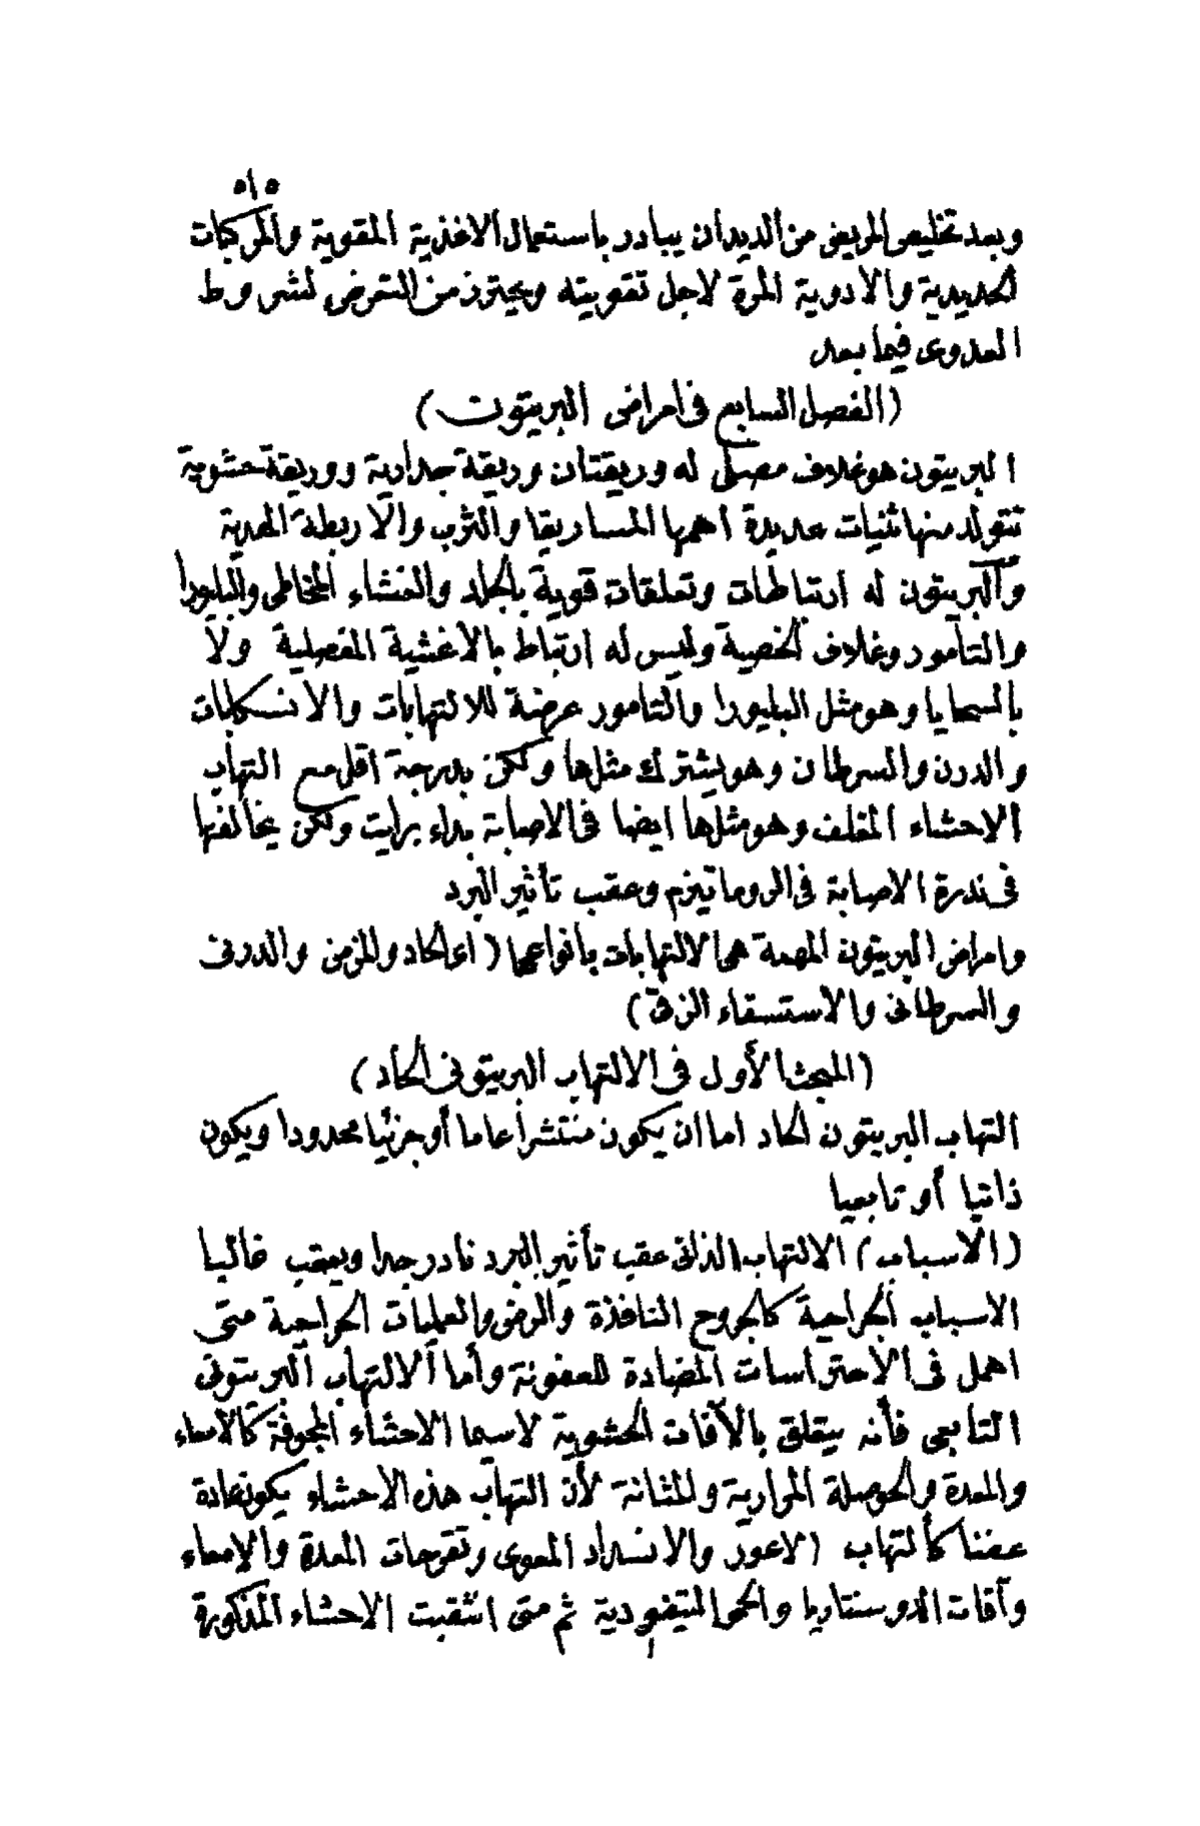 ٥١٥
وبعد تخليص المريض من الديدان يبادر باستعمال الاغذية المقوية والمركبات
الحديدية والادوية المرة لاجل تقويته ويحترز من التعرض لشروط
العدوى فيما بعد
(الفصل السابع فى امراض البريتون)
البريتون هو غلاف مصلى له وريقتان وريقة جدارية ووريقة حشوية
تتولد منها ثنيات عديدة اهمها المساريقا والثرب والاربطة المعدية
والبريتون له ارتباطات وتعلقات قوية بالجلد والغشاء المخاطى والبليورا
والتأمور وغلاف الخصية وليس له ارتباط بالاغشية المفصلية ولا
بالسحايا وهو مثل البليورا والتامور عرضة للالتهابات والانسكابات
والدرن والسرطان وهو يشترك مثلها ولكن بدرجة اقل مع التهاب
الاحشاء المغلف وهو مثلها ايضا فى الاصابة بداء برايت ولكن يخالفها
فى ندرة الاصابة فى الروماتيزم وعقب تأثير البرد
وامراض البريتون المهمة هى الالتهابات بانواعها (اى الحاد والمزمن والدرنى
والسرطانى والاستسقاء الزقى)
(المبحث الأول فى الالتهاب البريتونى الحاد)
التهاب البريتون الحاد اما ان يكون منتشرا عاما أو جزئيا محدودا ويكون
ذاتيا أو تابعيا
(الاسباب) الالتهاب الذاتى عقب تأثير البرد نادر جدا ويعقب غالبا
الاسباب الجراحية كالجروح النافذة والرض والعمليات الجراحية متى
اهمل فى الاحتراسات المضادة للعفونة وأما الالتهاب البريتونى
التابعى فأنه يتعلق بالآفات الحشوية لاسيما الاحشاء المجوفة كالامعاء
والمعدة والحوصلة المرارية والمثانة لأن التهاب هذه الاحشاء يكون عادة
عفنا كألتهاب الاعور والانسداد المعوى وتقرحات المعدة والامعاء
وآفات الدوسنتاريا والحمى التيفودية ثم متى انثقبت الاحشاء المذكورة